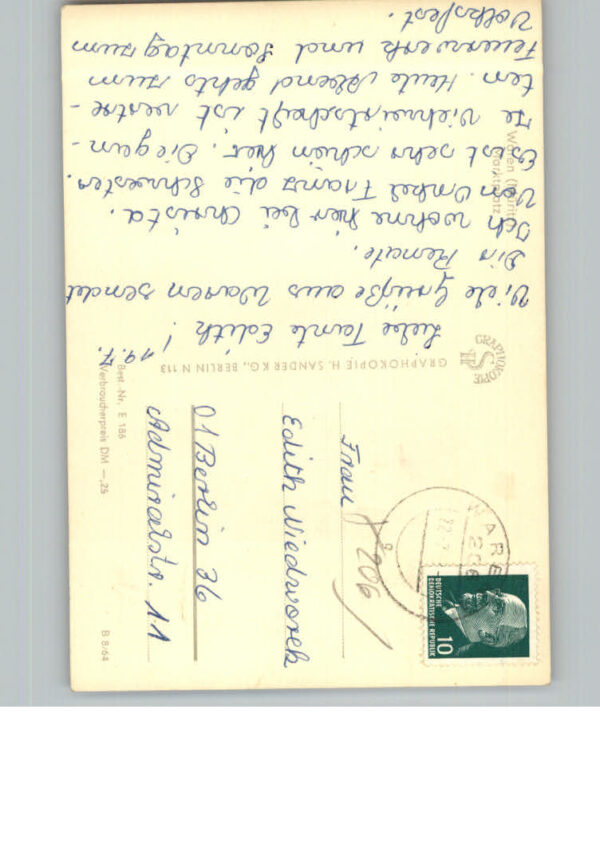 Liebe Tante Edith! 19.7.
Viele Grüße aus Waren sendet
Dir Renate.
Ich wohne hier bei Christa.
Von Onkel Franz die Schwester.
Es ist sehr schön hier. Die gan-
ze Viehwirtschaft ist vertre-
ten. Heute Abend gehts zum
Feuerwerk und Sonntag zum
Volksfest.
Waren (Müritz)
Marktplatz
GRAPHOKOPIE H. SANDER KG., BERLIN N 113
GRAPHOKOPIE
HS
Best.-Nr. E 186
Verbraucherpreis DM —,25
B 8/64
Frau
Edith Niedworek
01 Berlin 36
Admiralstr. 11
206
WAREN
206
DEUTSCHE
DEMOKRATISCHE REPUBLIK
10